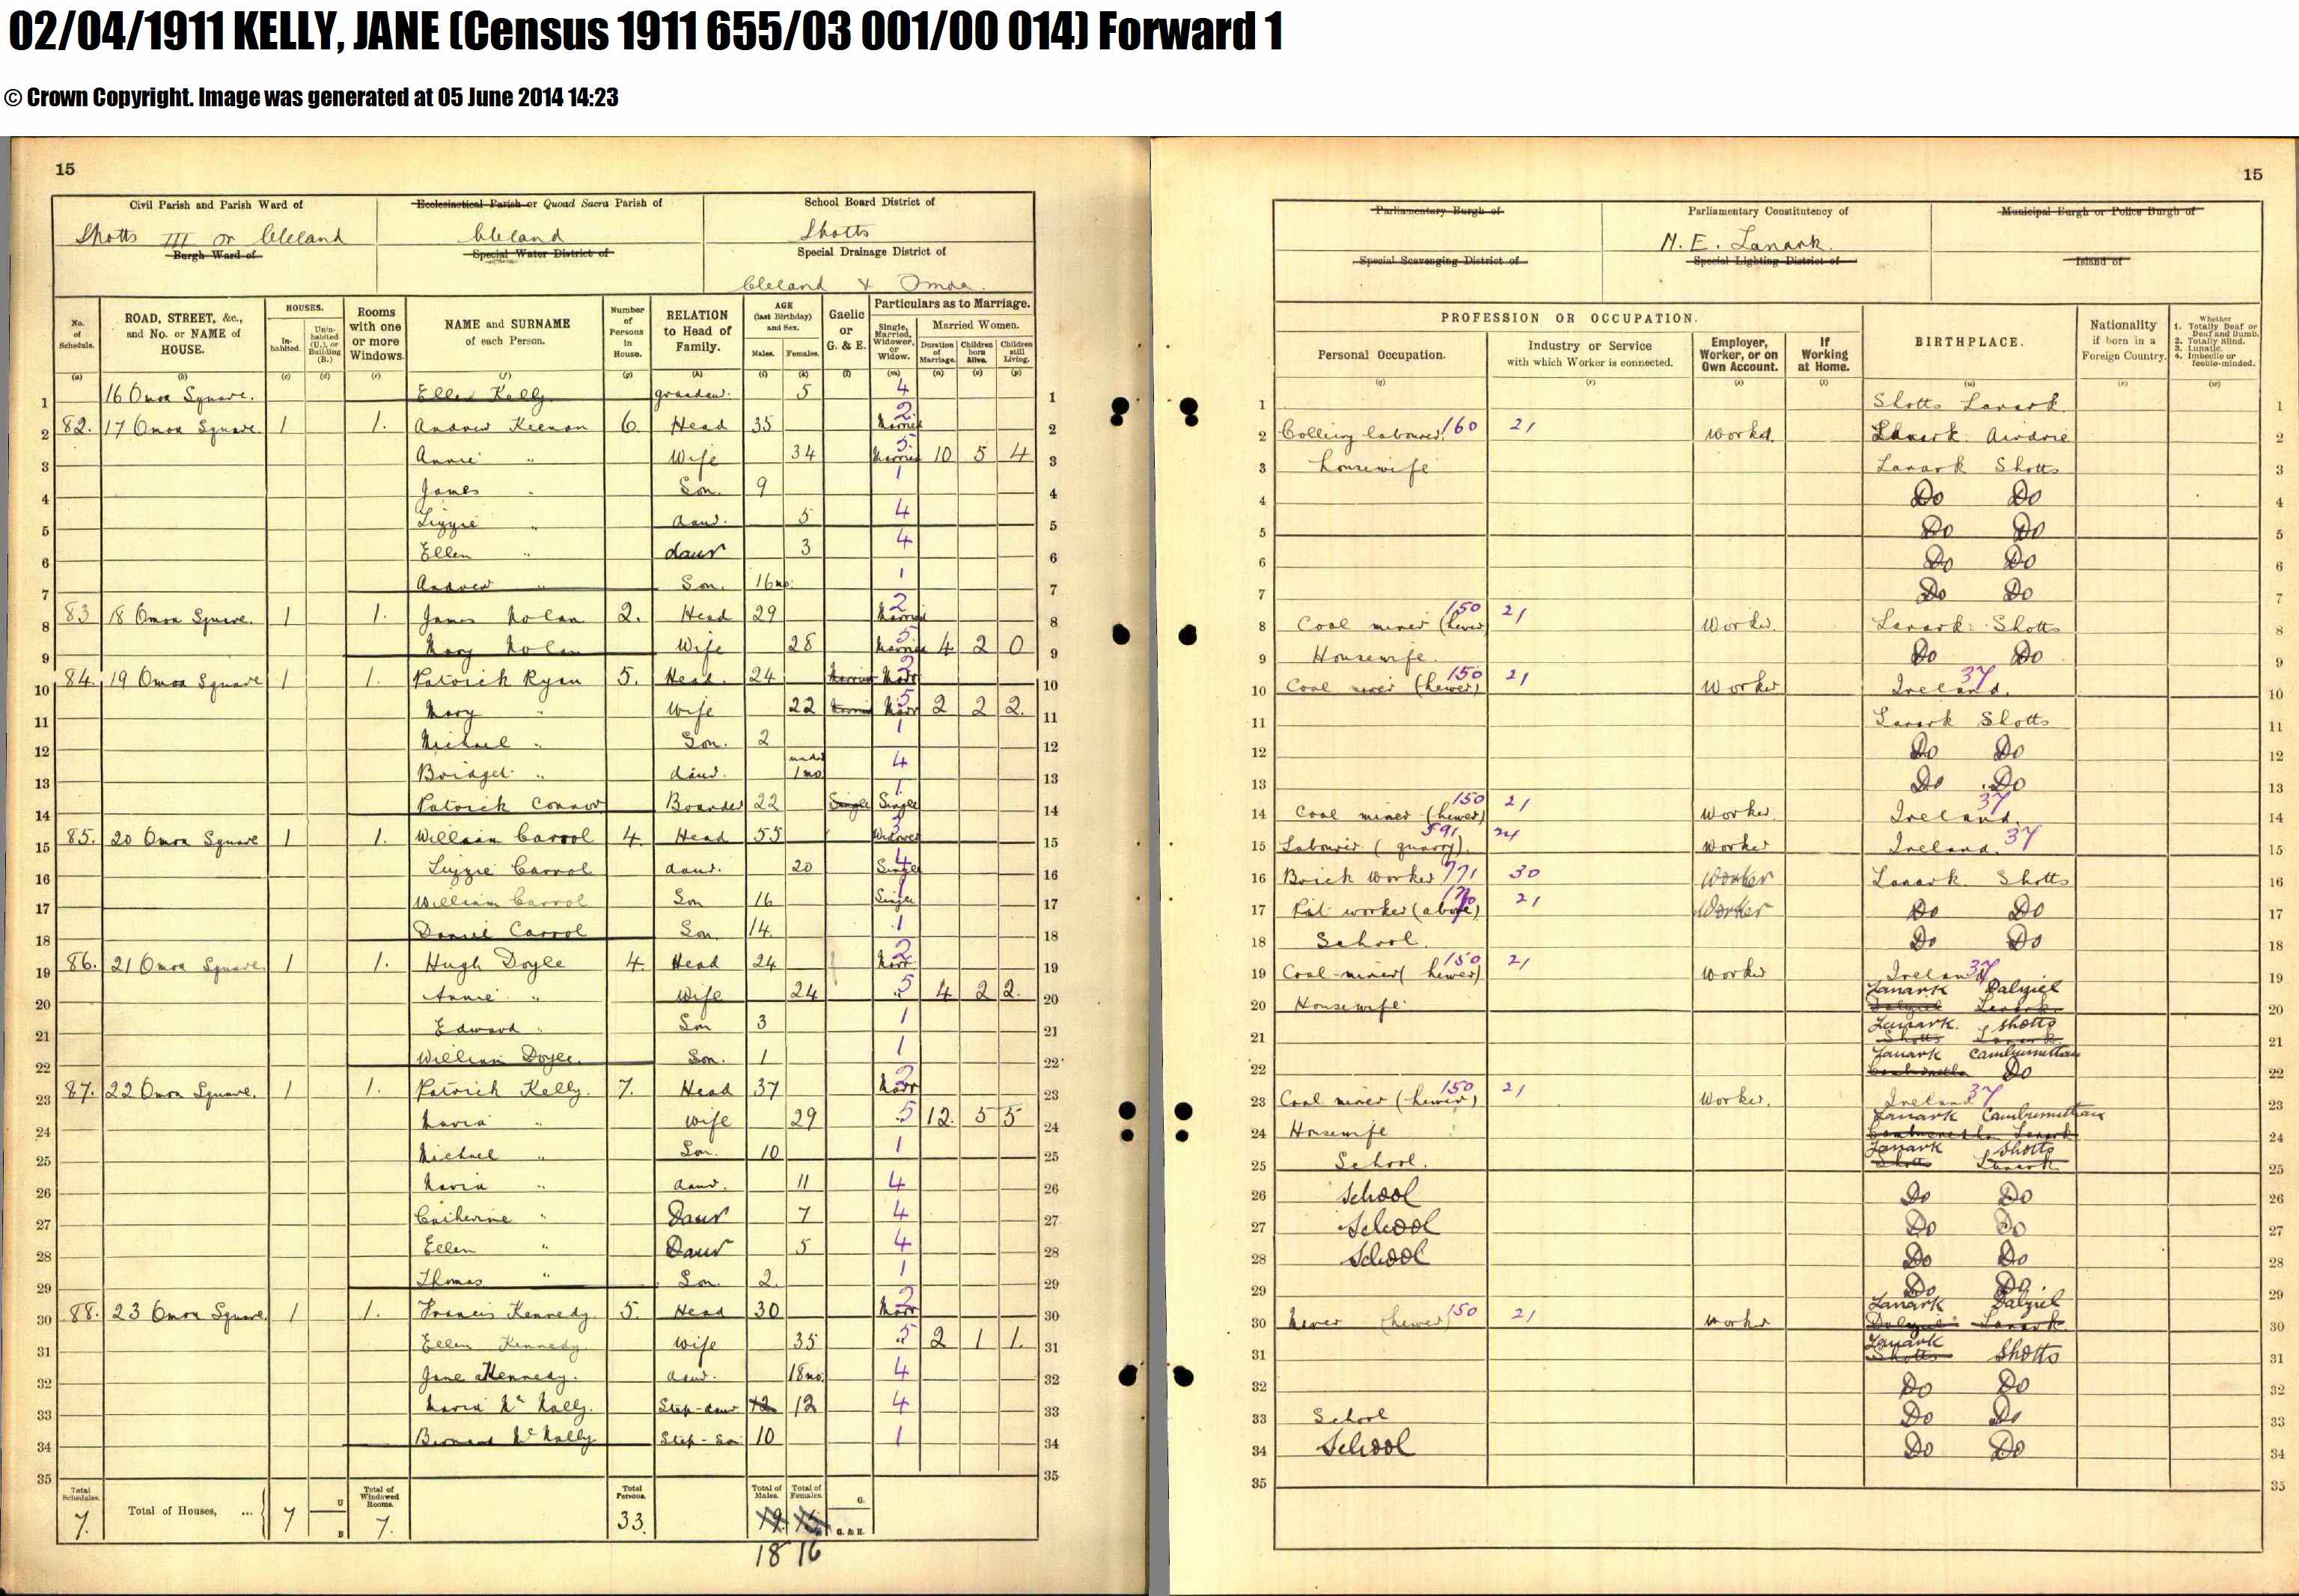 02/04/1911 KELLY, JANE (Census 1911 655/03 001/00 014) Forward 1
© Crown Copyright. Image was generated at 05 June 2014 14:23
15
Civil Parish and Parish Ward of Ecclesiastical Parish or Quoad Sacra Parish of School Board District of
Shotts III or Cleland Cleland Shotts
Burgh Ward of Special Water District of Special Drainage District of
Cleland & Omoa.
No. of Schedule. ROAD, STREET, &c., and No. or NAME of HOUSE. HOUSES. Inhabited. Uninhabited (U.), or Building (B.) Rooms with one or more Windows. NAME and SURNAME of each Person. Number of Persons in House. RELATION to Head of Family. AGE (last Birthday) and Sex. Males. Females. Gaelic or G. & E. Particulars as to Marriage. Single, Married, Widower, or Widow. Married Women. Duration of Marriage. Children born Alive. Children still Living.
(a) (b) (c) (d) (e) (f) (g) (h) (i) (k) (l) (m) (n) (o) (p)
1 16 Omoa Square. Ellen Kelly grandaur. 5 4 1
2 82. 17 Omoa Square. 1 1. Andrew Keenan 6. Head 35 Married 2 2
3 Annie " Wife 34 Married 5 10 5 4 3
4 James " Son. 9 1 4
5 Lizzie " daur. 5 4 5
6 Ellen " daur 3 4 6
7 Andrew " Son. 16 mo. 1 7
8 83 18 Omoa Square. 1 1. James Nolan 2. Head 29 Married 2 8
9 Mary Nolan Wife 28 Married 5 4 2 0 9
10 84. 19 Omoa Square 1 1. Patrick Ryan 5. Head. 24 Married Marr 2 10
11 Mary " Wife 22 Married Marr 5 2 2 2. 11
12 Michael " Son. 2 1 12
13 Bridget " daur. under 1 mo 4 13
14 Patrick Connor Boarder 22 Single Single 1 14
15 85. 20 Omoa Square 1 1. William Carrol 4. Head 55 Widower 3 15
16 Lizzie Carrol daur. 20 Single 4 16
17 William Carrol Son 16 Single 1 17
18 Daniel Carrol Son 14. 1 18
19 86. 21 Omoa Square. 1 1. Hugh Doyle 4. Head 24 Marr 2 19
20 Annie " Wife 24 " 5 4 2 2. 20
21 Edward " Son 3 1 21
22 William Doyle. Son. 1 1 22
23 87. 22 Omoa Square. 1 1. Patrick Kelly. 7. Head 37 Marr 2 23
24 Maria " Wife 29 5 12. 5 5 24
25 Michael " Son. 10 1 25
26 Maria " daur. 11 4 26
27 Catherine " Daur 7 4 27
28 Ellen " Daur 5 4 28
29 Thomas " Son. 2. 1 29
30 88. 23 Omoa Square. 1 1. Francis Kennedy. 5. Head 30 Marr 2 30
31 Ellen Kennedy. Wife 35 " 5 2 1 1. 31
32 Jane Kennedy. daur. 18 mo. 4 32
33 Maria McNally. Step-daur 12 12 4 33
34 Bernard McNally Step-Son 10 1 34
35 35
Total Schedules. 7. Total of Houses, ... 7 U B Total of Windowed Rooms. 7. Total Persons. 33. Total of Males. Total of Females. G. G. & E.
18 16
15
Parliamentary Burgh of Parliamentary Constitutency of Municipal Burgh or Police Burgh of
N. E. Lanark.
Special Scavenging District of Special Lighting District of Island of
PROFESSION OR OCCUPATION. Personal Occupation. Industry or Service with which Worker is connected. Employer, Worker, or on Own Account. If Working at Home. BIRTHPLACE. Nationality if born in a Foreign Country. Whether 1. Totally Deaf or Deaf and Dumb. 2. Totally Blind. 3. Lunatic. 4. Imbecile or feeble-minded.
(q) (r) (s) (t) (u) (v) (w)
1 Shotts Lanark. 1
2 Colliery labourer. 160 21 Worker. Lanark. Airdrie 2
3 housewife Lanark Shotts 3
4 Do Do 4
5 Do Do 5
6 Do Do 6
7 Do Do 7
8 Coal miner (hewer) 150 21 Worker. Lanark: Shotts 8
9 Housewife. Do Do 9
10 Coal miner (hewer) 150 21 Worker Ireland. 37 10
11 Lanark Shotts 11
12 Do Do 12
13 Do Do 13
14 Coal miner (hewer) 150 21 Worker. Ireland. 37 14
15 Labourer (quarry). 591 24 Worker Ireland. 37 15
16 Brick Worker 771 30 Worker Lanark. Shotts 16
17 Pit worker (above) 21 Worker Do Do 17
18 School. Do Do 18
19 Coal-miner (hewer) 150 21 Worker Ireland 37 19
20 Housewife. Lanark Dalziel Dalziel Lanark 20
21 Lanark. Shotts Shotts Lanark 21
22 Lanark Cambusnethan Cambusnethan Do 22
23 Coal miner (hewer) 150 21 Worker. Ireland 37 23
24 Housewife Lanark Cambusnethan Cambusnethan Lanark 24
25 School. Lanark Shotts Shotts Lanark 25
26 School Do Do 26
27 School Do Do 27
28 School Do Do 28
29 Do Do 29
30 (hewer) 150 21 Worker Lanark Dalziel Dalziel Lanark 30
31 Lanark Shotts Shotts 31
32 Do Do 32
33 School Do Do 33
34 School Do Do 34
35 35